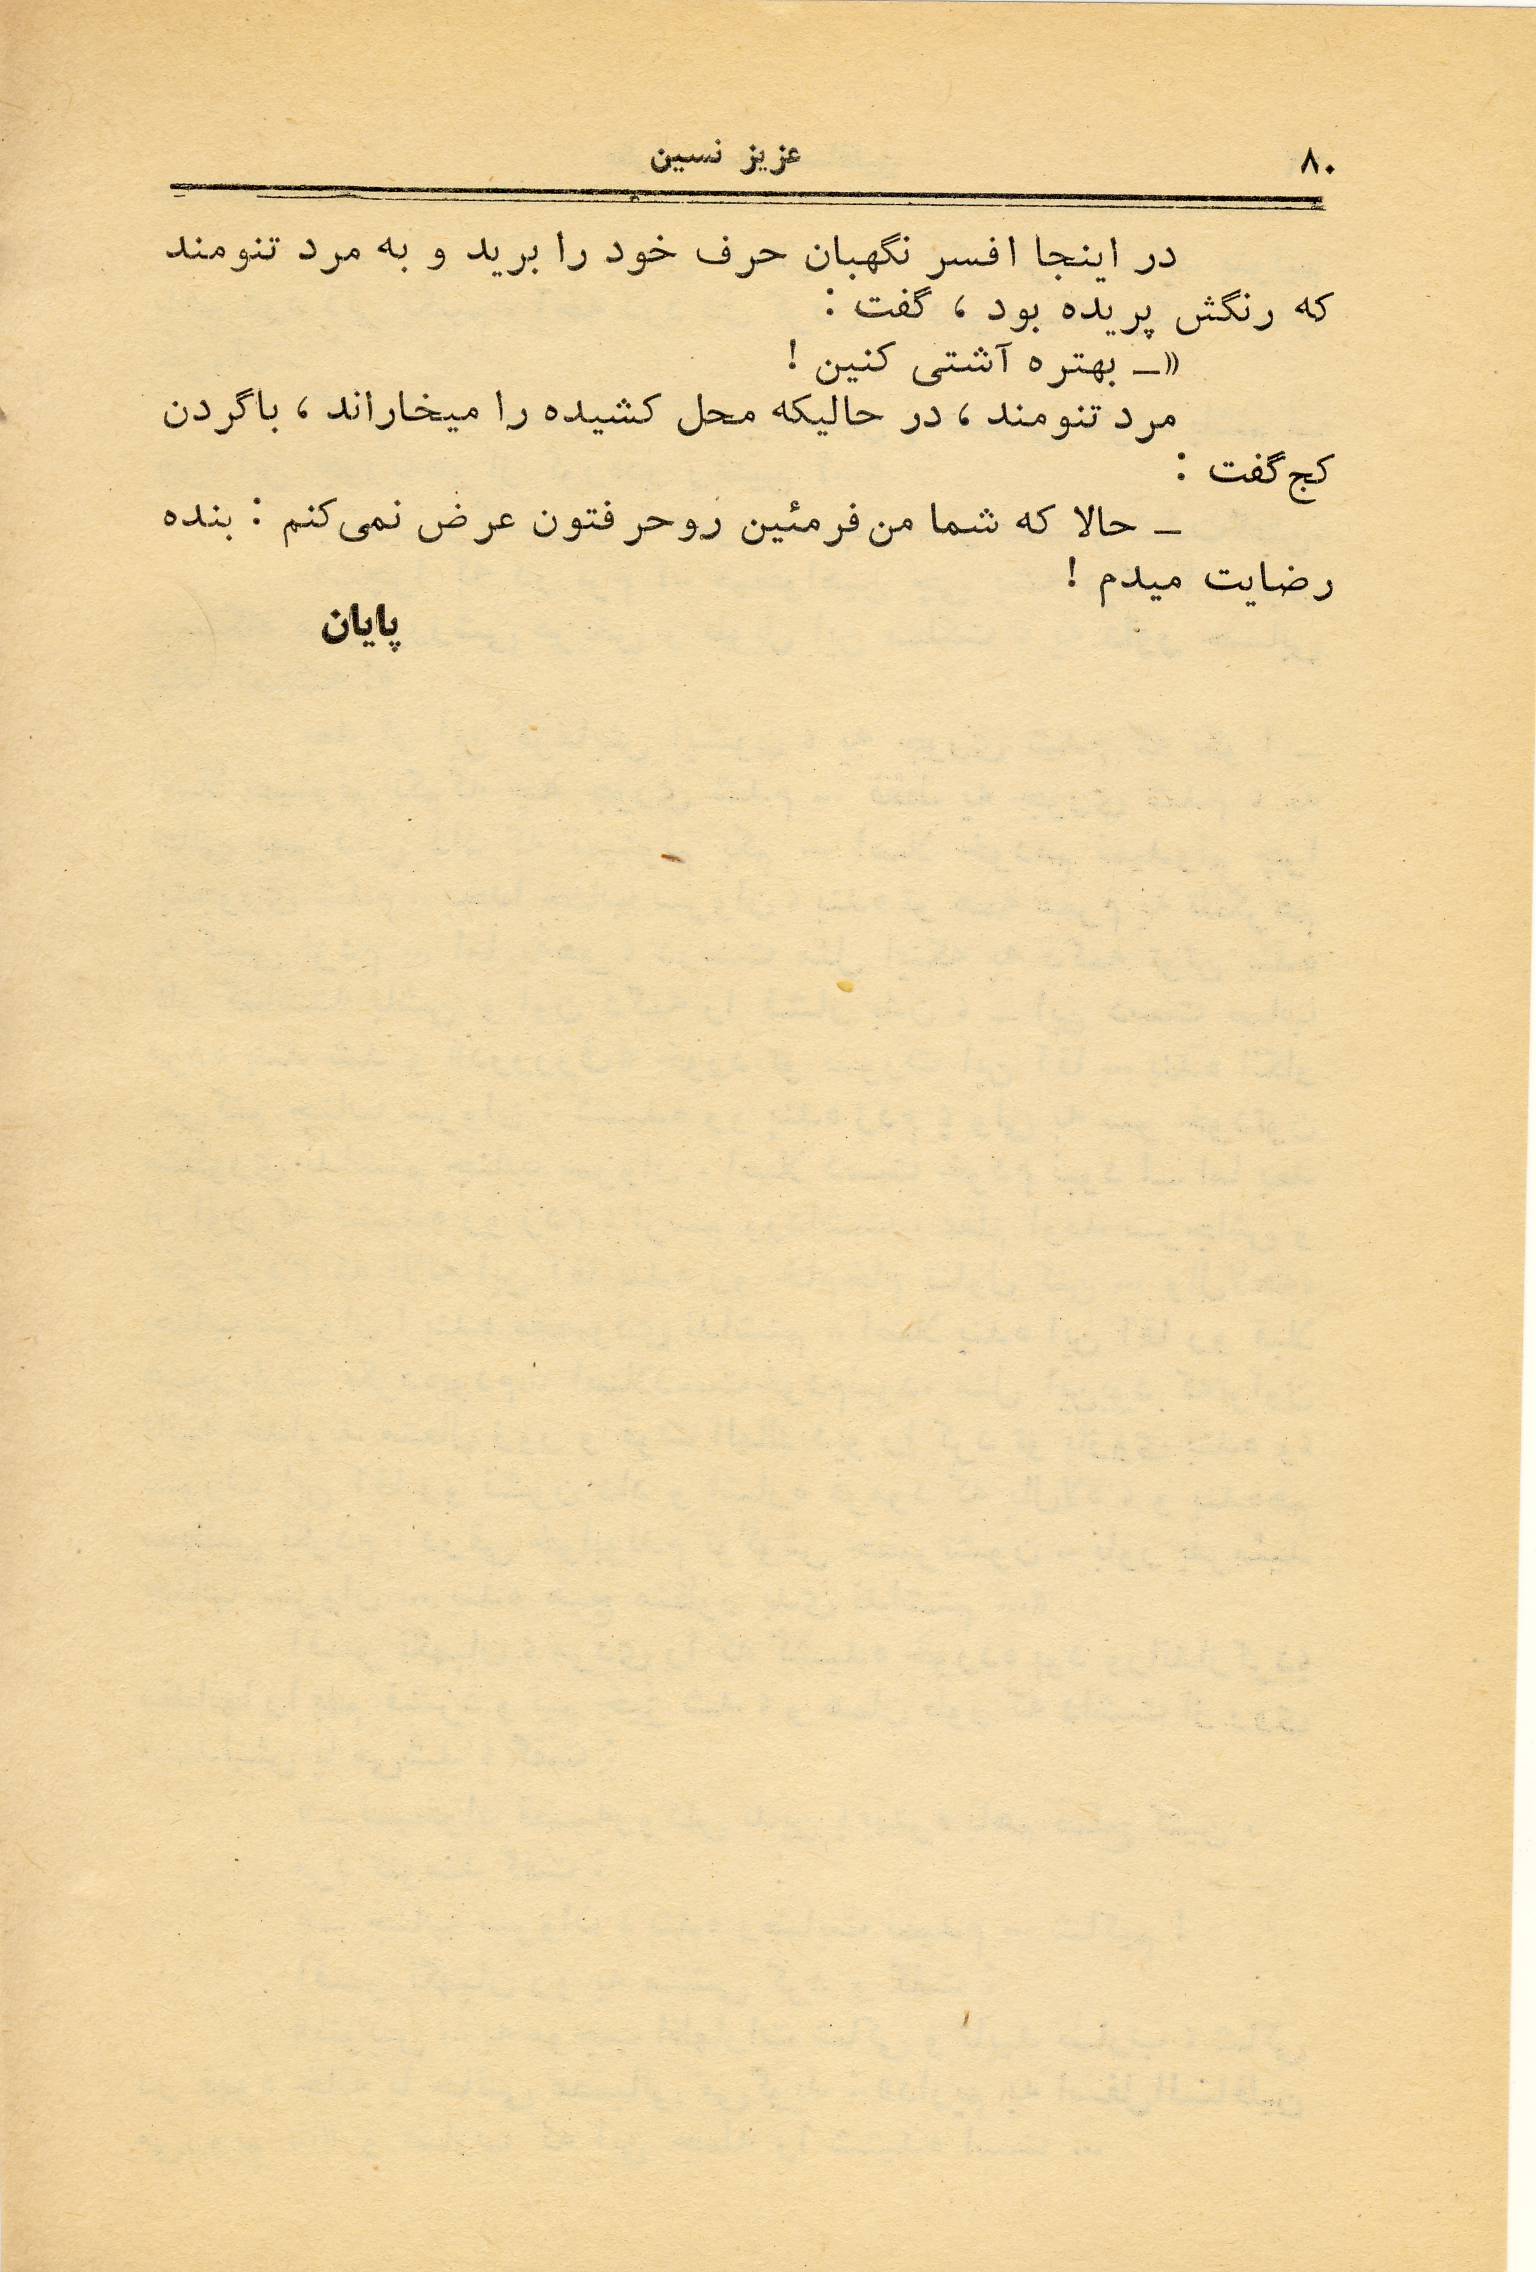 ۸۰
عزیز نسین
در اینجا افسر نگهبان حرف خود را برید و به مرد تنومند
که رنگش پریده بود ، گفت :
«ـ بهتره آشتی کنین !
مرد تنومند ، در حالیکه محل کشیده را میخاراند ، باگردن
کج گفت :
ـ حالا که شما من فرمئین روحر فتون عرض نمی‌کنم : بنده
رضایت میدم !
پایان